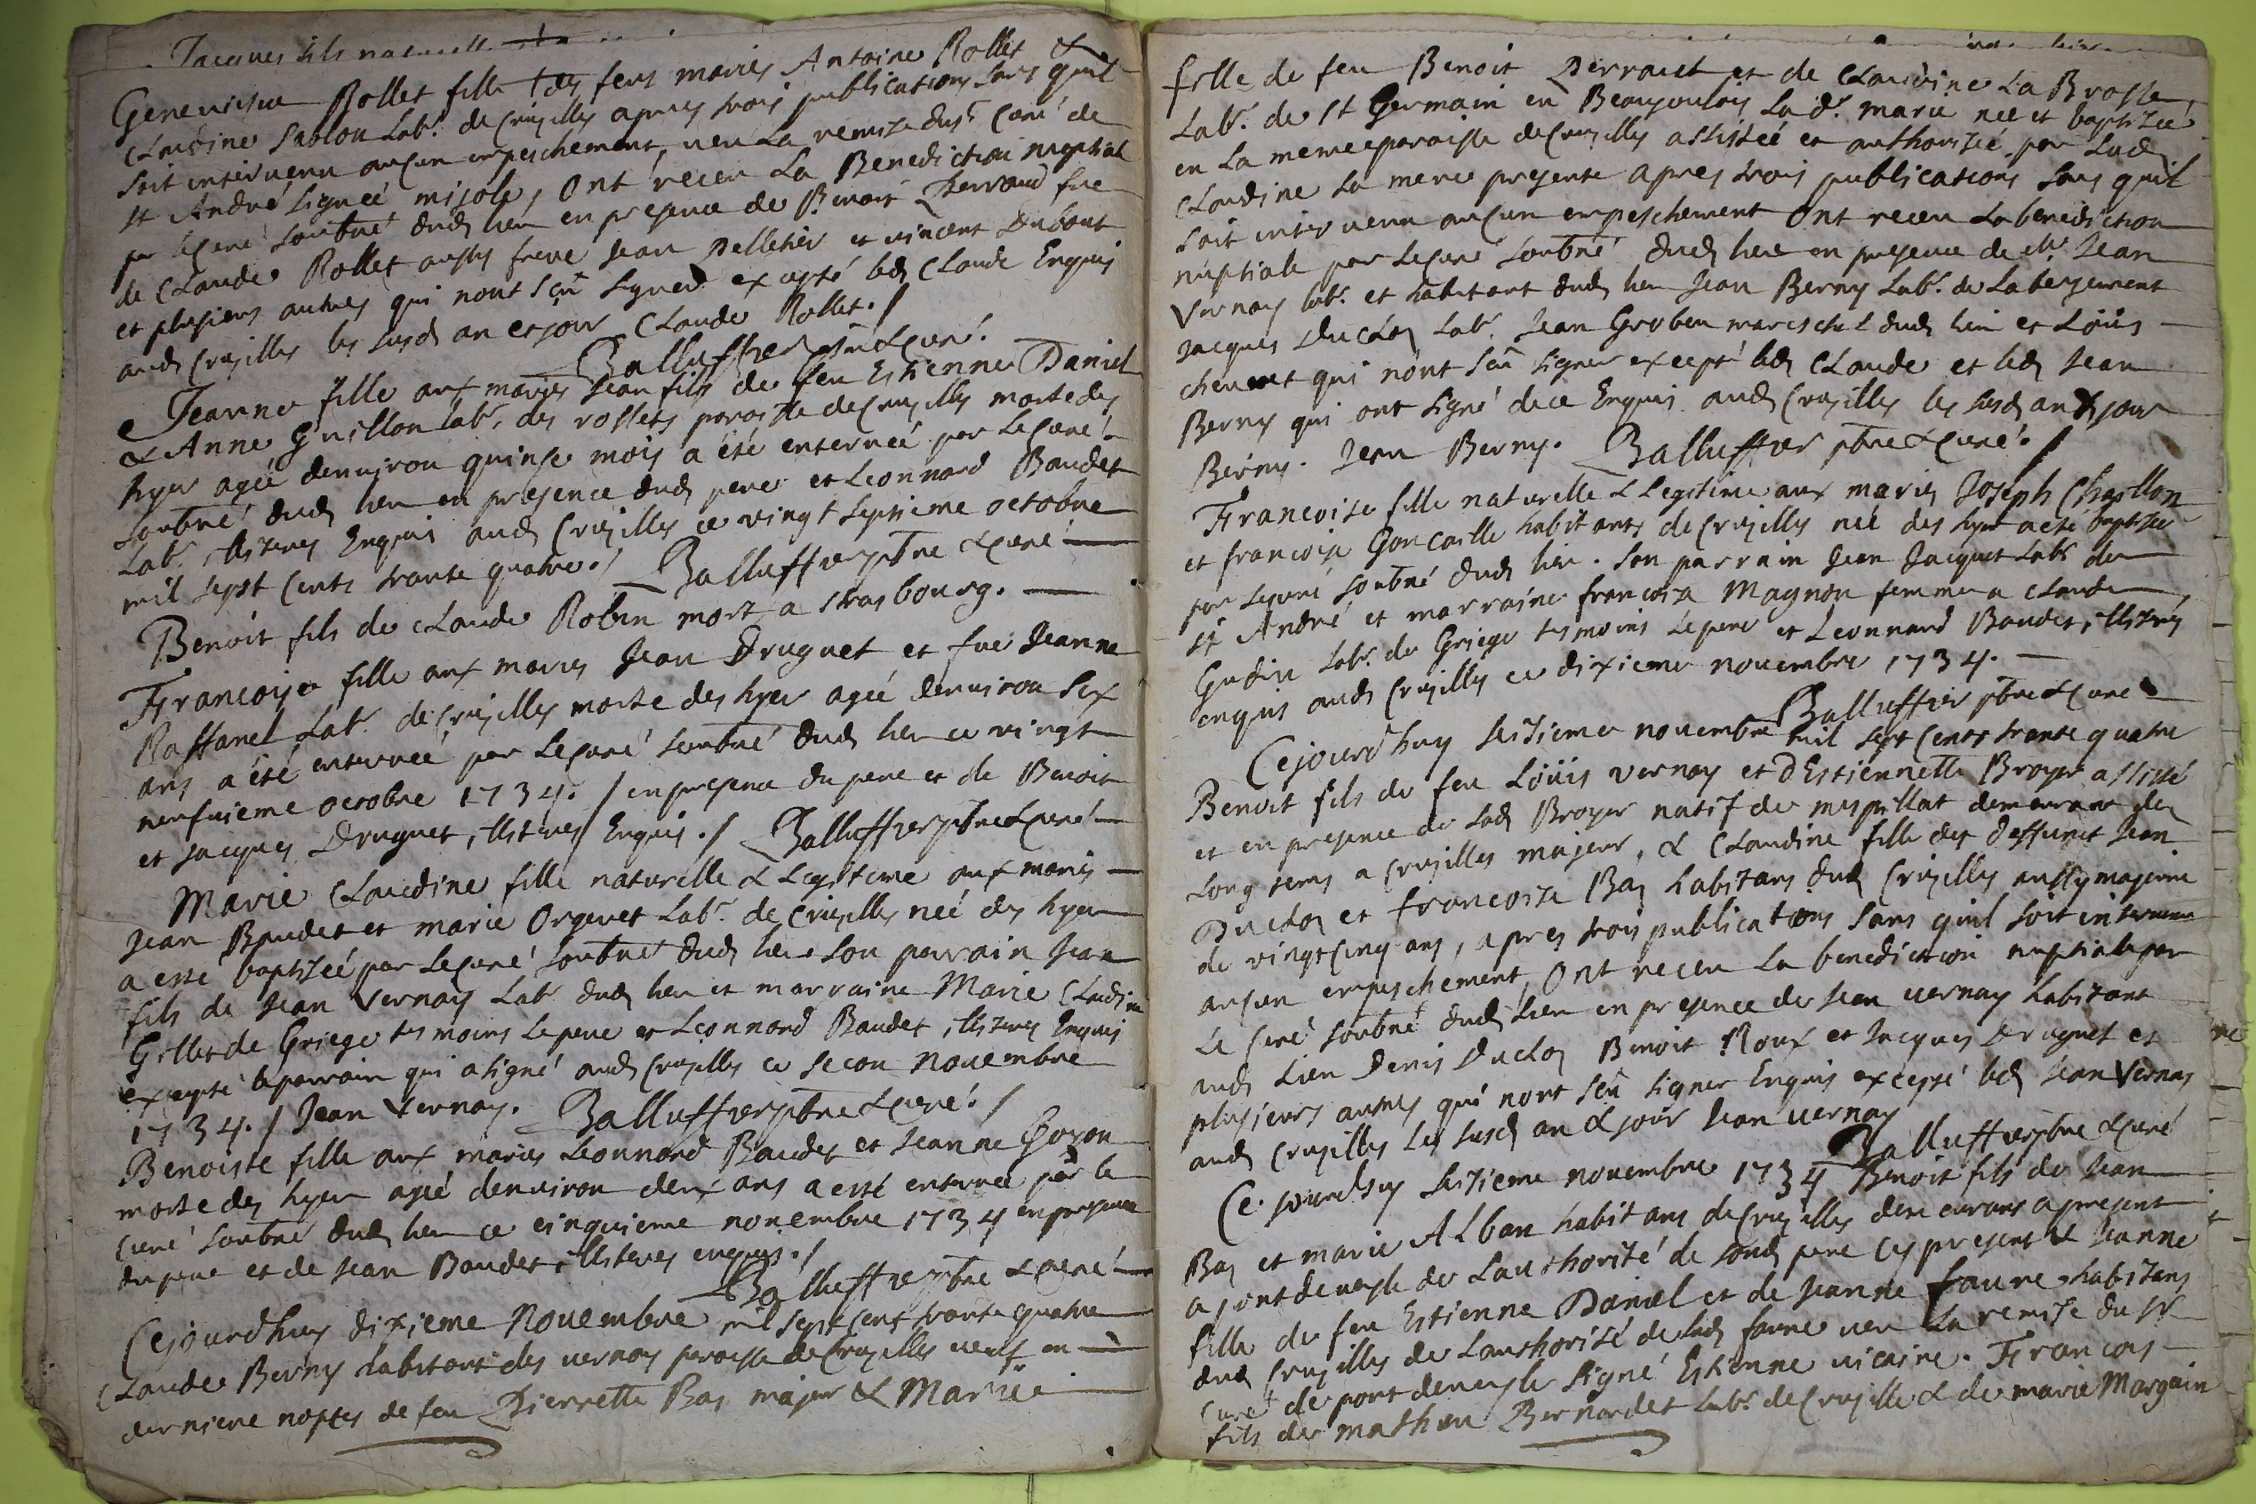 Jacques fils naturelle
Genevieue Rollet fille des feus mariés Antoine Rollet &
Claudine Sablon Labr. de Crusilles apres trois publications sans quil
soit intervenu auçun empeschement, veu La remise dusr. Curé de
st André signeé misole, Ont receu La Benediction nuptiale
par leCuré soubné dud lieu en presence de Benoit Perraud fue
de Claude Rollet aussy freue Jean Pelletier et vincent Dubout
et plusieurs autres qui nont sçû signer excepté led Claude Enquis
aud Crusilles les susd an et jour Claude Rollet. /
Balluffier ptre & curé.
Jeanne fille aux mariés Jean fils de feu Estienne Daniel
& Anne Guillon labr. des rollets paroisse de Crusilles morte des
hyer agée denuiron quinse mois a été enterreé par Le Curé
soubné dud lieu en presence dud pere et Leonnard Baudet
Labr. illiteres Enquis aud Crusilles ce vingt septieme octobre
mil sept cents trante quatre. / Balluffier ptre & curé
Benoit fils de Claude Robin mort a strasbourg.
Francoise fille aux mariés Jean Druguet et fue Jeanne
Raffanel Labr de Crusilles morte des hyer ageé denuiron six
ans a été enterreé par LeCuré soubné dud lieu ce vingt
neufuieme octobre 1734. / en presence du pere et de Benoit
et Jacques Druguet, illiteres Enquis. / Balluffier ptre & curé
Marie Claudine fille naturelle & Legitime aux mariés
Jean Baudet et marie Orgeret Labr. de Crusilles neé des hyer
a esté baptiseé par LeCuré soubné dud lieu son parrain Jean
fils de Jean Vernay Labr dud lieu et marraine Marie Claudine
Gillet de Griege tesmoins Le pere et Leonnard Baudet, illiteres Enquis
excepté le parrain qui a signé aud Crusilles ce secon Nouembre
1734. / Jean Vernay. Balluffier ptre & curé. /
Benoiste fille aux mariés Leonnard Baudet et Jeanne Goyon
morte des hyer ageé denuiron deux ans a esté enterreé par le
Curé soubné dud lieu ce cinquieme nouembre 1734 en presence
du pere et de Jean Baudet, illiteres enquis. /
Balluffier ptre & curé
Cejourdhuy dixieme Nouembre mil sept cens trante quatre
Claude Berny habitant des vernay paroisse de Crusilles veuf en
derniere noptes de feu Pierrette Bas majeur & Marie
fille de feu Benoit Perraud et de Claudine La Brosse
Labr. de st Germain en Beaujoulois La d. marie neé et baptizeé
en La meme paroisse de Crusilles assisteé et authoriseé par Lad
Claudine sa mere presente apres trois publications sans quil
soit intervenu auçun empeschement Ont receu La benediction
nuptiale par LeCuré soubné dud lieu en presence de Mr. Jean
Vernay labr. et habitant dud lieu Jean Berny Labr. de Labergement
Jacques Duclos Labr. Jean Grobon mareschal dud lieu et Loüis
chevenet qui n'ont sçû signer excepté led Claude et led Jean
Berny qui ont signé dece Enquis aud Crusilles les susd an & jour
Berny. Jean Berny. Balluffier ptre & curé. /
Francoise fille naturelle & Legitime aux mariés Joseph Chapellon
et francoise Goncaille habitants de Crusilles neé des hyer a été baptiseé
par LeCuré soubné dud lieu. Son parrain Jean Jacquet Labr de
st André et marraine francoise Magnon femme a Claude
Gudin Labr. de Griege tesmoins Le pere et Leonnard Baudet, illiterés
enquis aud Crusilles ce dixieme nouembre 1734.
Balluffier ptre & curé
Cejourdhuy seizieme nouembre mil sept cents trante quatre
Benoit fils de feu Loüis vernay et d'Estiennette Broyer assisté
et en presence de Lad Broyer natif de mespillat demeurant des
Long tems a Crusilles majeur, & Claudine fille des deffunct Jean
Duclos et francoise Bas habitans dud Crusilles aussy majeure
de vingt cinq ans, apres trois publications sans quil soit intervenu
auçun empeschement, Ont receu La benediction nuptiale par
Le Curé soubné dud Lieu en presence de Jean vernay habitant
aud Lieu Denis Duclos Benoit Roux et Jacques Druguet et
plusieurs autres qui n'ont sçû signer Enquis excepté led Jean Vernay
aud Crusilles Les susd an & jour Jean Vernay
Balluffier ptre & curé
Ce jourdhuy seizieme nouembre 1734 Benoit fils de Jean
Bas et marie Alban habitans de Crusilles demeurant a present
a pont deveyle de L'authorité de sond pere Cy present & Jeanne
fille de feu Estienne Daniel et de Jeanne faure habitans
dud Crusilles de L'authorité de Lad faure veu La remise du sr
Curé de pont deveyle signé Estienne vicaire. Francois
fils de mathieu Bernardet Labr. de Crusille & de marie Margain